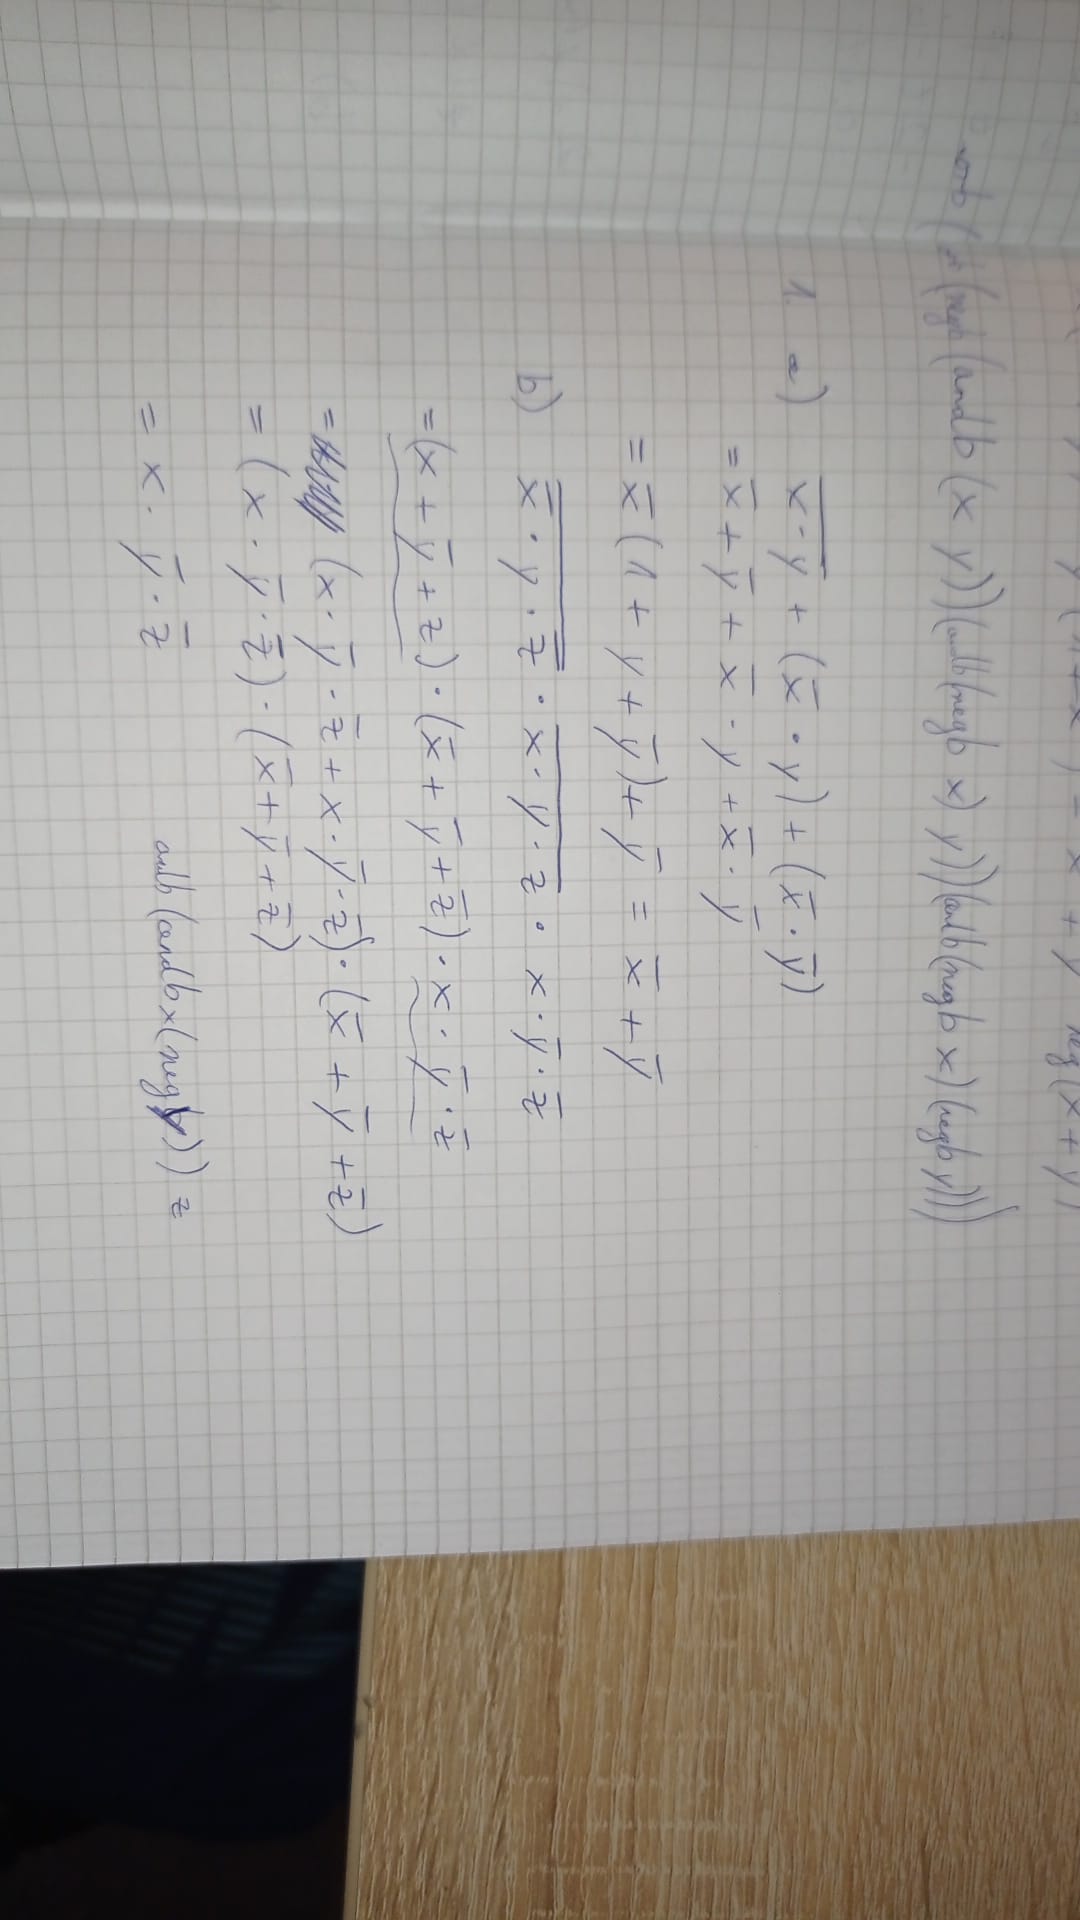 y (1 + x) = x + y neg (x + y)
(negb (andb (x y)) (andb (negb x) y)) (andb (negb x) (negb y)))
1. a) x̅·̅y̅ + (x̅ · y) + (x̅ · y̅)
= x̅ + y̅ + x̅ · y + x̅ · y̅
= x̅ (1 + y + y̅) + y̅ = x̅ + y̅
b) x̿ ·̅ y̅ ·̅ z̿ · x̅ ·̅ y̅ ·̅ z̅ · x · y̅ · z̅
= (x + y̅ + z) · (x̅ + y̅ + z̅) · x · y̅ · z̅
= (x · y̅ · z̅ + x · y̅ · z̅) · (x̅ + y̅ + z̅)
= (x · y̅ · z̅) · (x̅ + y̅ + z̅)
= x · y̅ · z̅
andb (andb x (neg y)) z